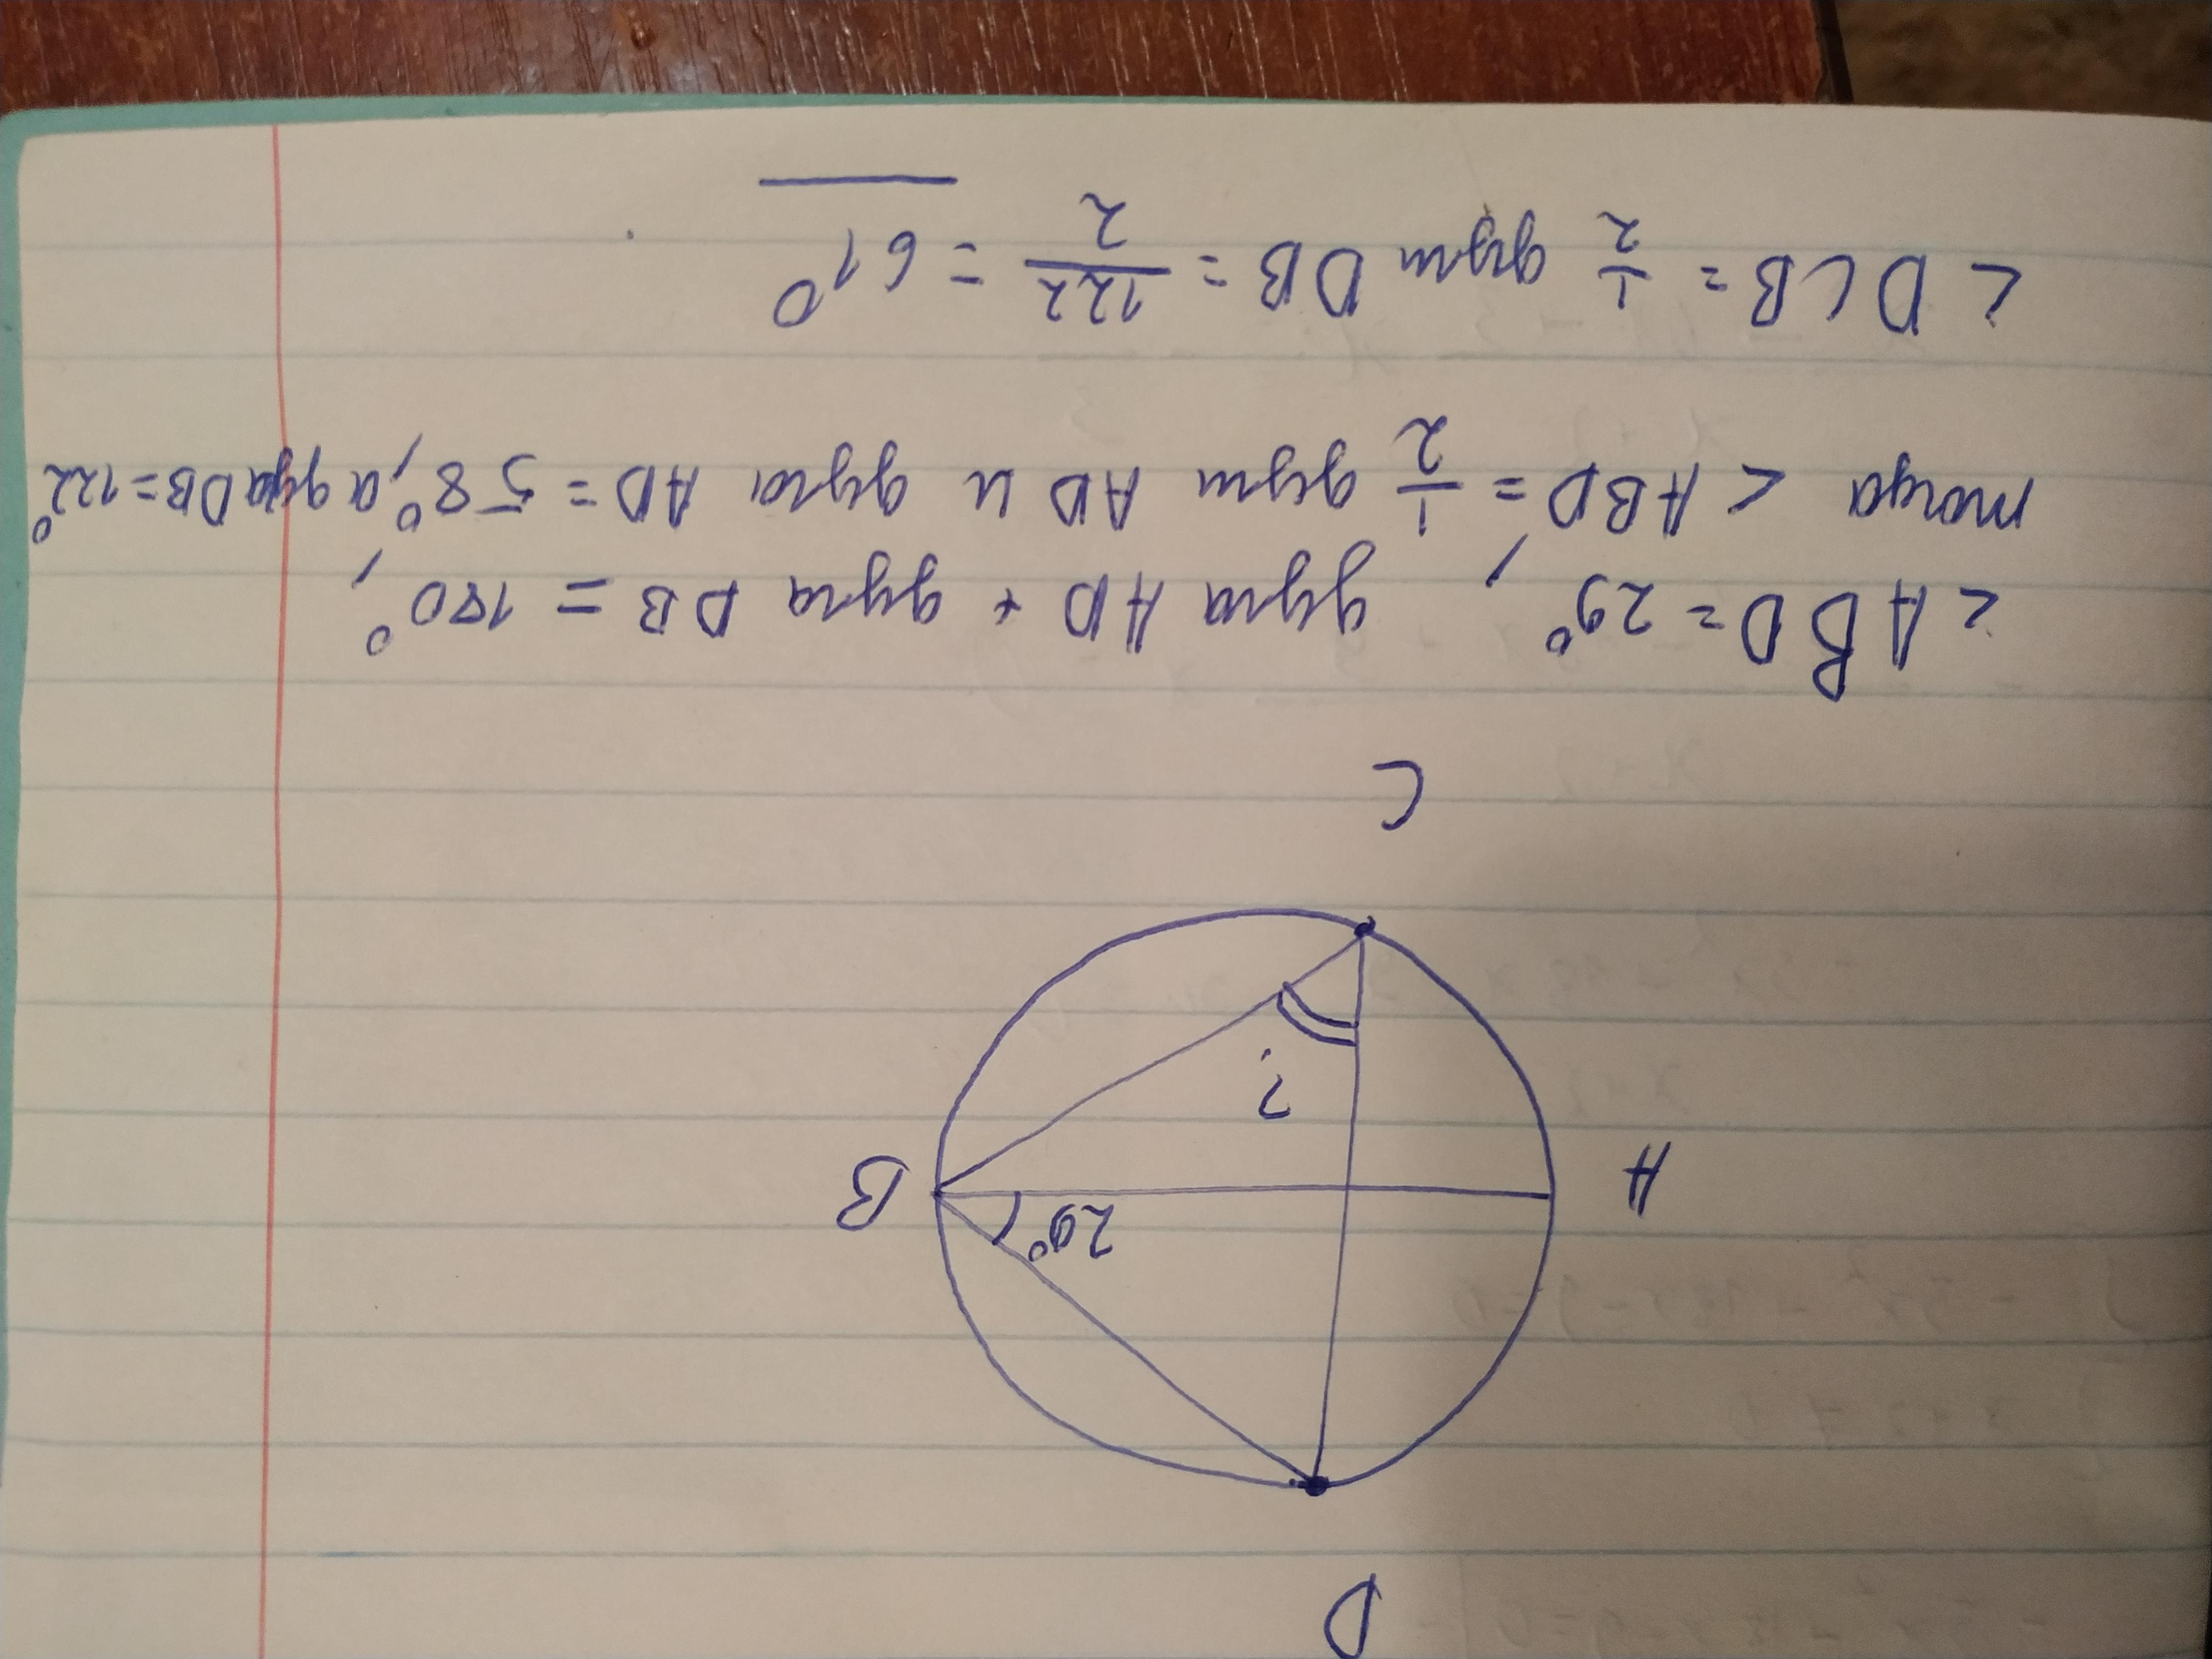 D
A
29°
B
?
C
< ABD = 29°, дуга AD + дуга DB = 180°,
тогда < ABD = 1/2 дуги AD и дуга AD = 58°, а дуга DB = 122°
< DCB = 1/2 дуги DB = 122/2 = 61°